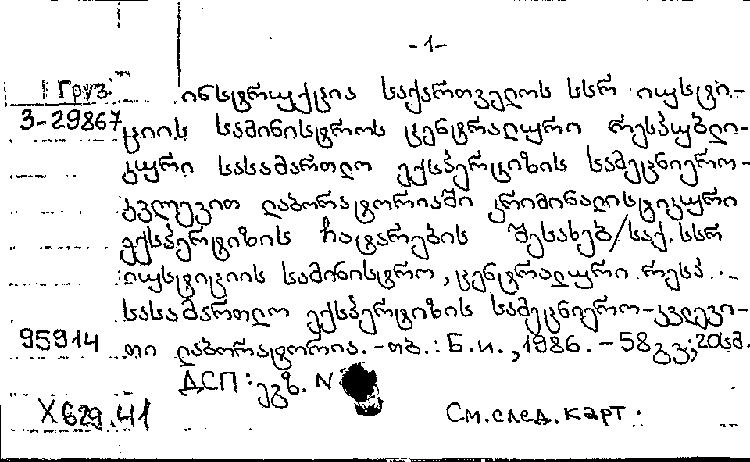 -1-
Груз.
ინსტრუქცია საქართველოს სსრ იუსტი-
3-29867
ციის სამინისტროს ცენტრალური რესპუბლი-
კური სასამართლო ექსპერტიზის სამეცნიერო-
კვლევით ლაბორატორიაში კრიმინალისტიკური
ექსპერტიზის ჩატარების შესახებ/საქ. სსრ
იუსტიციის სამინისტრო, ცენტრალური რესპ.
სასამართლო ექსპერტიზის სამეცნიერო-კვლევი-
95914
თი ლაბორატორია. -თბ.: Б.и., 1986. - 58გვ; 20სმ.
ДСП: ეგზ. N
X629.41
См. след. карт.